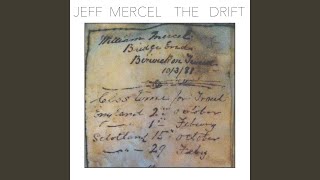 JEFF MERCEL THE DRIFT
William Mercel
Bridge
Berwick on Tweed
10/3/88
Close Time for Trout
England 2nd October
1st Feby
Scotland 15th October
29 Feby